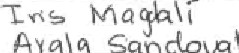 Iris Magdali
Ayala Sandoval